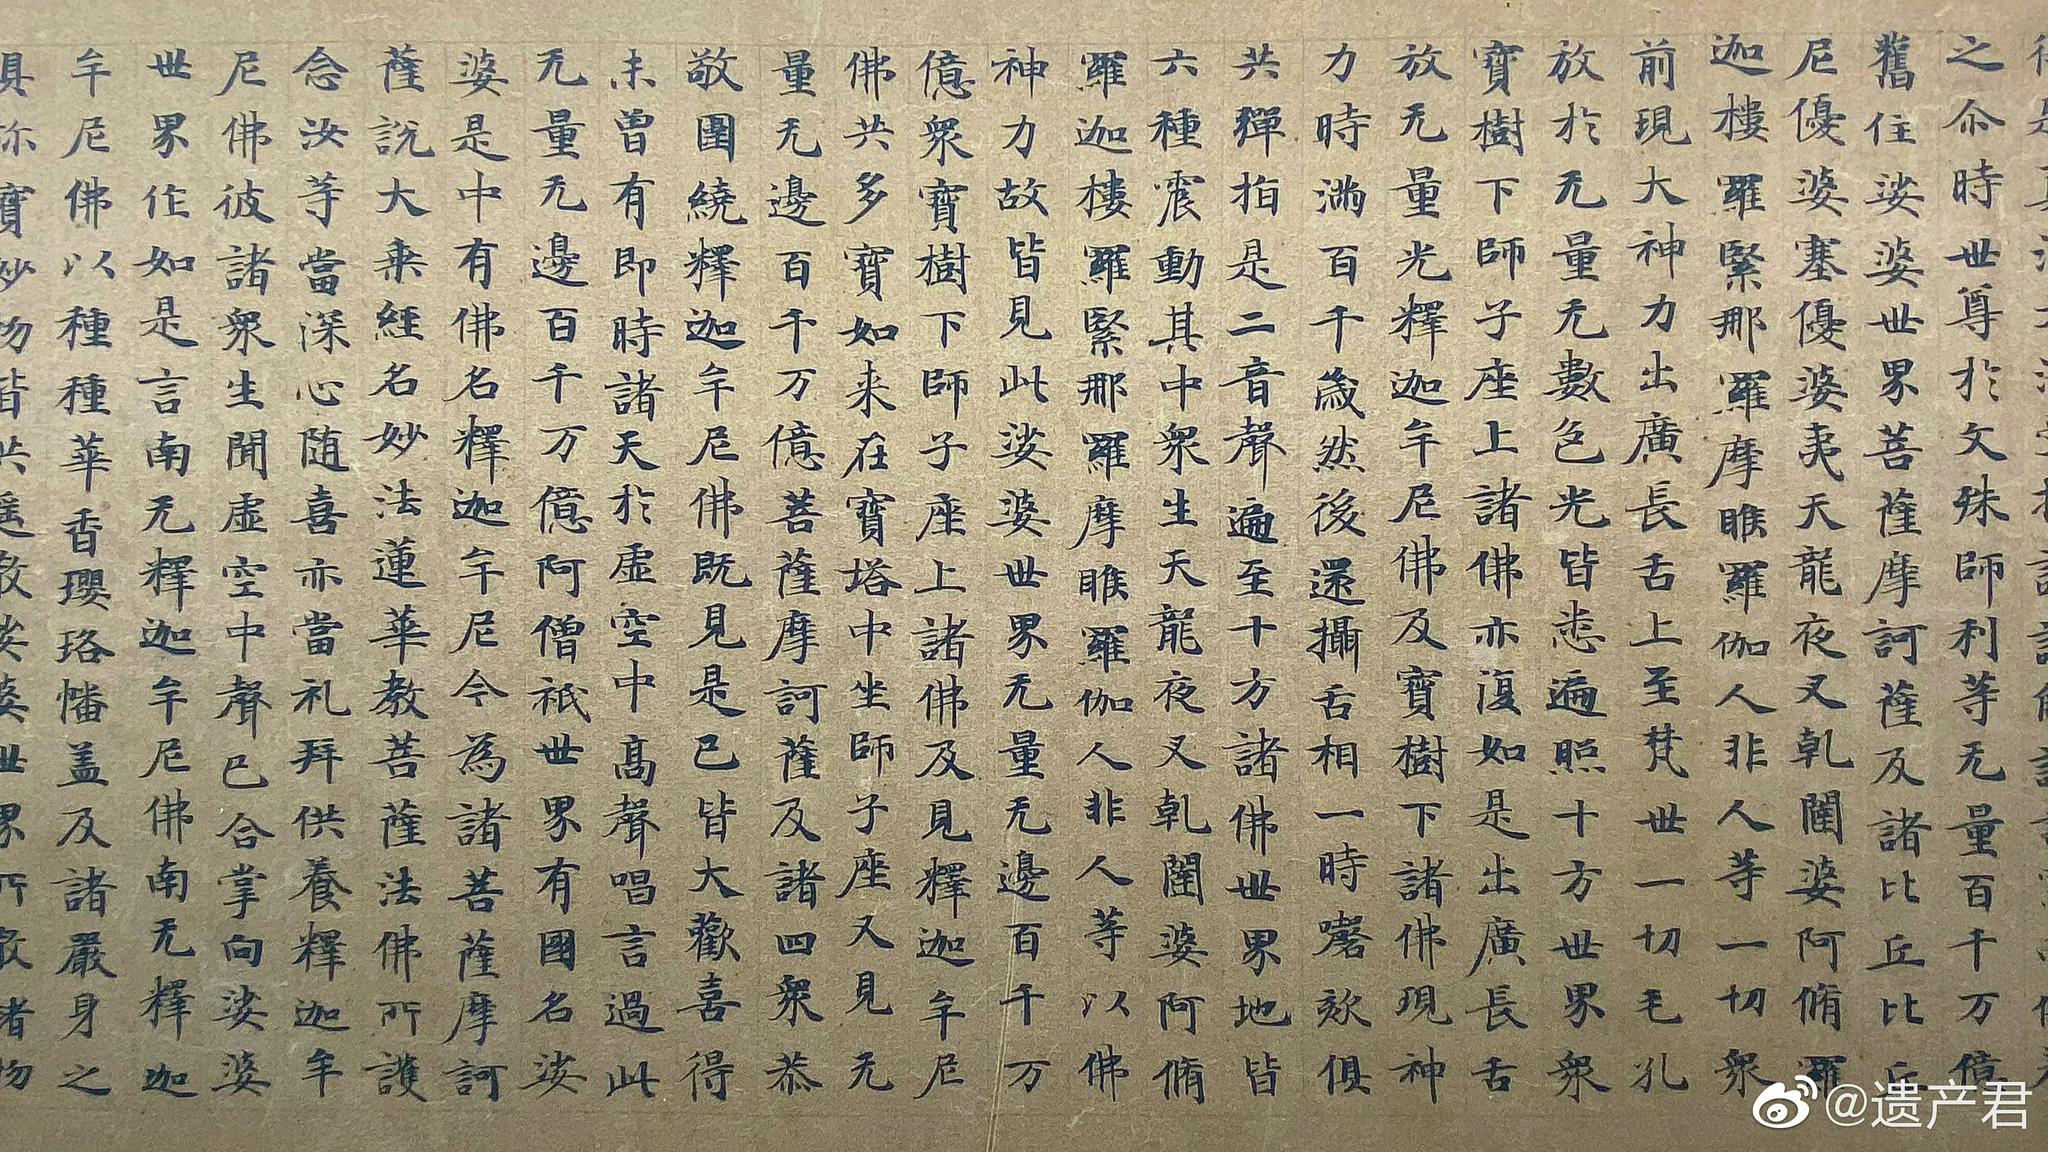 之尒時世尊於文殊師利等无量百千万億
舊住娑婆世界菩薩摩訶薩及諸比丘比丘
尼優婆塞優婆夷天龍夜叉乹闥婆阿脩羅
迦樓羅緊那羅摩睺羅伽人非人等一切眾
前現大神力出廣長舌上至梵世一切毛孔
放於无量无數色光皆悉遍照十方世界眾
寶樹下師子座上諸佛亦復如是出廣長舌
放无量光釋迦牟尼佛及寶樹下諸佛現神
力時滿百千歲然後還攝舌相一時謦欬俱
共彈拍是二音聲遍至十方諸佛世界地皆
六種震動其中眾生天龍夜叉乹闥婆阿脩
羅迦樓羅緊那羅摩睺羅伽人非人等以佛
神力故皆見此娑婆世界无量无邊百千万
億眾寶樹下師子座上諸佛及見釋迦牟尼
佛共多寶如来在寶塔中坐師子座又見无
量无邊百千万億菩薩摩訶薩及諸四眾恭
敬圍繞釋迦牟尼佛既見是已皆大歡喜得
未曾有即時諸天於虛空中高聲唱言過此
无量无邊百千万億阿僧祇世界有國名娑
婆是中有佛名釋迦牟尼今為諸菩薩摩訶
薩說大乗經名妙法蓮華教菩薩法佛所護
念汝等當深心随喜亦當礼拜供養釋迦牟
尼佛彼諸眾生聞虛空中聲已合掌向娑婆
世界作如是言南无釋迦牟尼佛南无釋迦
牟尼佛以種種華香瓔珞幡盖及諸嚴身之
具珎寶妙物皆共遥散娑婆世界所散諸物
@遗产君